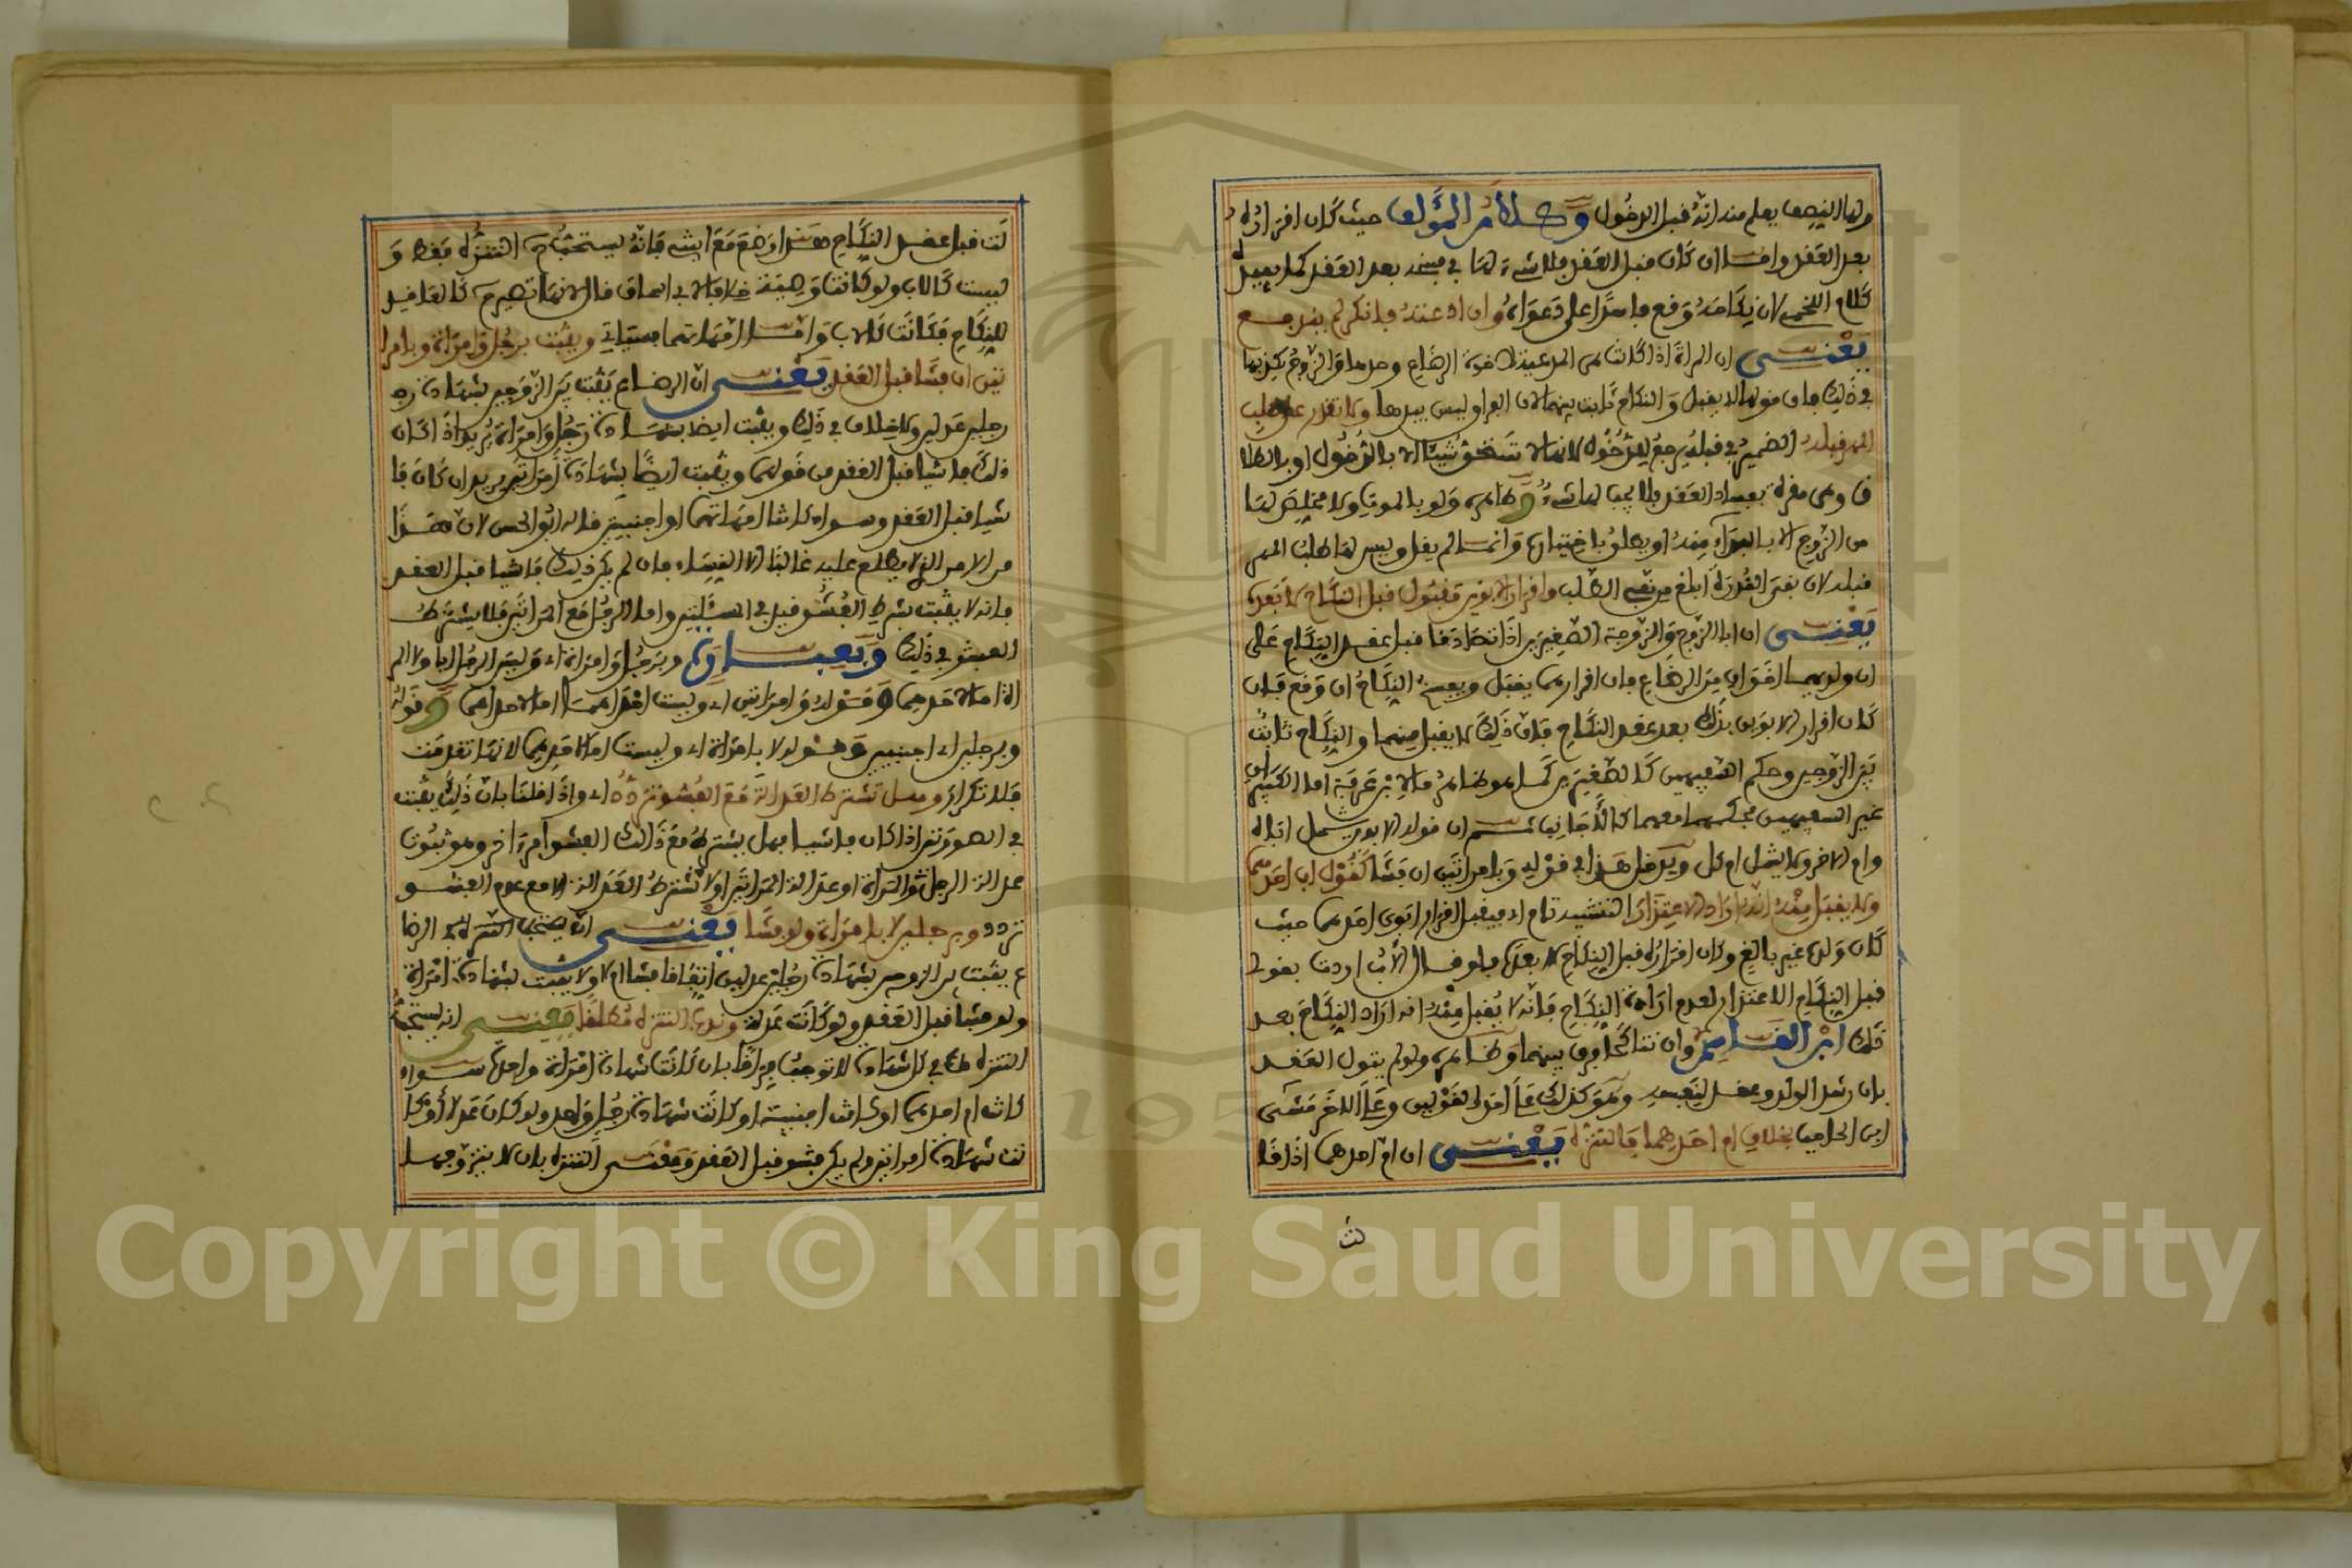 ولها النصف يعلم منه انه قبل الدخول وكلام المؤلف حيث كان اقراره
بعد العقد واما ان كان قبل العقد فلا شيء لها في فسخه بعد العقد كما يفيده
كلام اللخمي لان نكاحه وقع فاسدا على دعواه وان ادعته فانكر لم يندفع
يعني ان المرأة اذا كانت هي المدعية لاخوة الرضاع وحدها والزوج يكذبها
في ذلك فان قولها لا يقبل والنكاح ثابت بينهما لان الفراق ليس بيدها ولا تقدر على طلب
المهر قبله الضمير في قبله يرجع للدخول لانها لا تستحق شيئا الا بالدخول او بالطلا
ق وهي مقرة بفساد العقد فلا يجب لها شيء وظاهره ولو بالموت ولا مخلص لها
من الزوج الا بالفراق منه او يطلق باختياره وانما لم يقل وليس لها طلب المهر
قبله لان نفي القدرة ابلغ من نفي الطلب واقرار الابوين مقبول قبل النكاح لا بعده
يعني ان ابا الزوج والزوجة الصغيرين اذا تصادقا قبل عقد النكاح على
ان ولديهما اخوان من الرضاع فان اقرارهما يقبل ويفسخ النكاح ان وقع فان
كان اقرار الابوين بذلك بعد عقد النكاح فان ذلك لا يقبل منهما والنكاح ثابت
بين الزوجين وحكم السفيهين كالصغيرين كما هو ظاهر قاله ابن عرفة اما الكبيران
غير السفيهين فحكمهما معهما كالاجانب ثم ان قوله الابوين يشمل اب
وام الاخر ولا يشمل ام كل ويدخل هذا في قوله وبامراتين ان فشا كقول اب احدهما
ولا يقبل منه انه اراد الاعتذار التشبيه تام اي فيقبل اقرار ابوي احدهما حيث
كان ولده غير بالغ وكان اقراره قبل النكاح لا بعده فلو قال الاب اردت بقولي
قبل النكاح الاعتذار لعدم ارادة النكاح فانه لا يقبل منه انه اراد النكاح بعد
ذلك ابن القاسم وان تناكحا فرق بينهما وظاهره ولو لم يتول العقد
بان رشد الولد وعقد لنفسه وهو كذلك على احد القولين وعلى الاخر مشى
ابن الحاجب بخلاف ام احدهما فالتنزه يعني ان ام احدهما اذا قا
لت
لت قبل عقد النكاح هذا رضع مع ابنتي فانه يستحب التنزه فقط و
ليست كالاب ولو كانت وصية خلافا لابي اسحاق قال لانها تصير كالعاقد
للنكاح فكانت كالاب واما امهاتهما فسياتي ويثبت برجل وامراة وبامرا
تين ان فشا قبل العقد يعني ان الرضاع يثبت بين الزوجين بشهادة ر
جلين عدلين ولا خلاف في ذلك ويثبت ايضا بشهادة رجل وامراة يريد اذا كان
ذلك فاشيا قبل العقد من قولهما ويثبت ايضا بشهادة امراتين يريد ان كان فا
شيا قبل العقد وسواء كانتا امهاتهما او اجنبيتين قاله ابو الحسن لان هذا
من الامر الذي لا يطلع عليه غالبا الا النساء فان لم يكن ذلك فاشيا قبل العقد
فانه لا يثبت بشرط الفشو قيل في المسئلتين واما الرجل مع امراتين فلا يشترط
الفشو في ذلك وبعبارة وبرجل وامراة اي وليس الرجل ابا ولا المر
اة اما لاحدهما وقوله وامراتين اي وليست احداهما اما لاحدهما وقوله
وبرجلين اي اجنبيين وقوله لا بامراة اي وليست اما لاحدهما لانها تقدمت
فلا تكرار وهل تشترط العدالة مع الفشو تردد اي واذا قلنا بان ذلك يثبت
في الصورتين اذا كان فاشيا فهل يشترط مع ذلك الفشو امر اخر وهو ثبوت
عدالة الرجل والمراة او عدالة المراتين او لا تشترط العدالة الا مع عدم الفشو
تردد وبرجلين لا بامراة ولو فشا يعني ان الرضا
ع يثبت بين الزوجين بشهادة رجلين عدلين اتفاقا فشا ام لا ولا يثبت بشهادة امراة
ولو فشا قبل العقد ولو كانت عدلة وندب التنزه مطلقا يعني انه يستحب
التنزه في كل شهادة لا توجب فراقا بان كانت شهادة امراة واحدة سواء
كانت ام احدهما او كانت اجنبية او كانت شهادة رجل واحد ولو كان عدلا او كا
نت شهادة امراتين ولم يكن فشو قبل العقد ومعنى التنزه بان لا يتزوجها